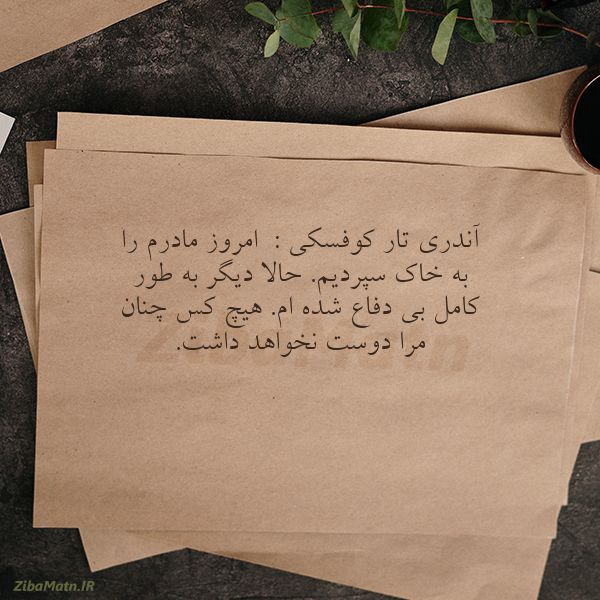 آندری تار کوفسکی : امروز مادرم را
به خاک سپردیم. حالا دیگر به طور
کامل بی دفاع شده ام. هیچ کس چنان
مرا دوست نخواهد داشت.
ZibaMatn
ZibaMatn.IR